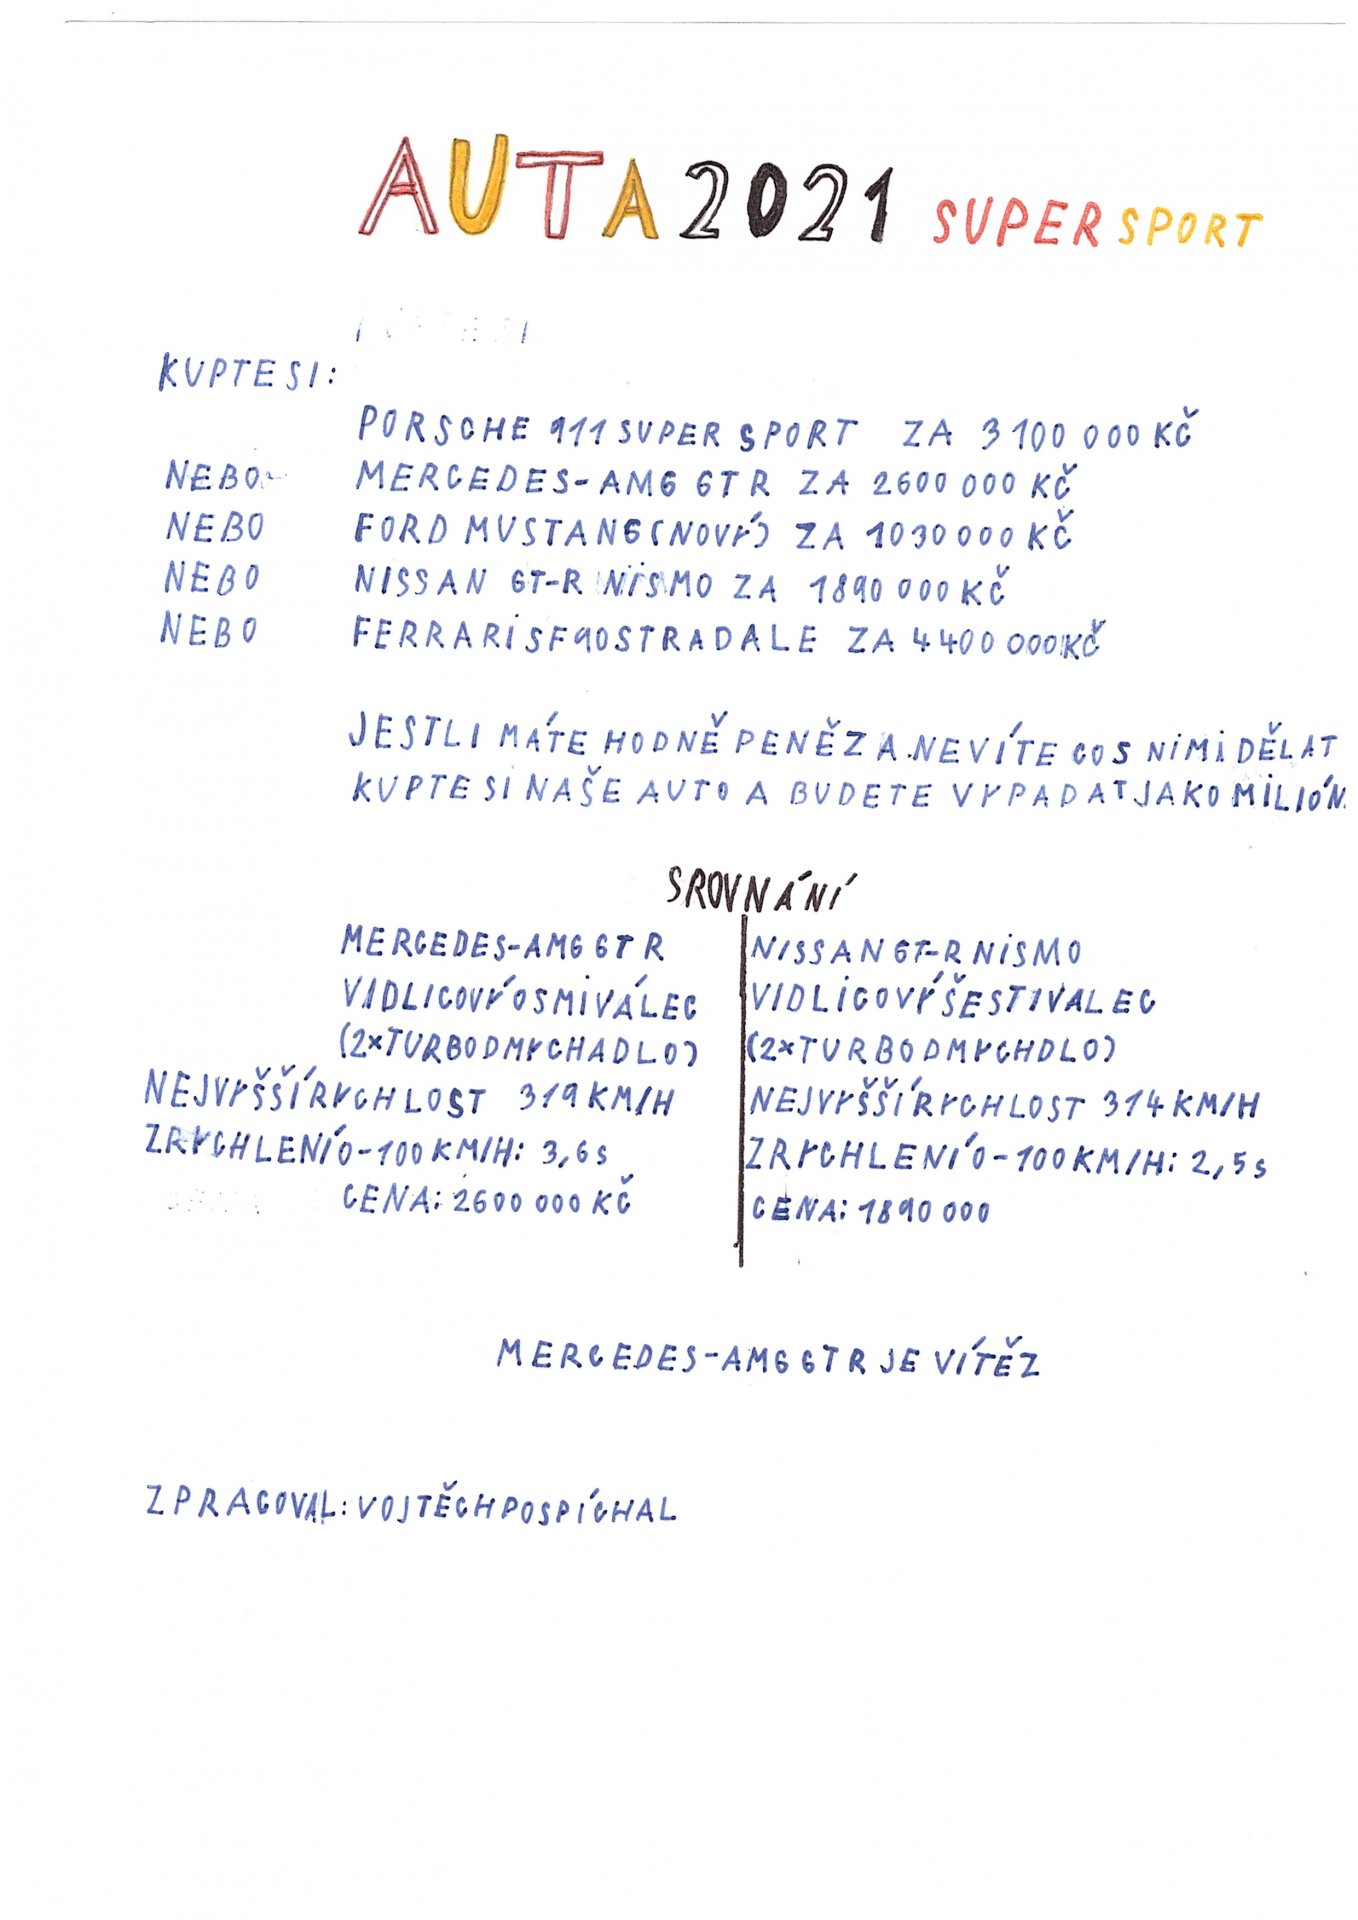 AUTA 2021 SUPER SPORT
KUPTE SI:
PORSCHE 911 SUPER SPORT ZA 3 100 000 KČ
NEBO MERCEDES-AMG GT R ZA 2600 000 KČ
NEBO FORD MUSTANG (NOVÝ) ZA 1030 000 KČ
NEBO NISSAN GT-R NISMO ZA 1890 000 KČ
NEBO FERRARI SF90 STRADALE ZA 4400 000 KČ
JESTLI MÁTE HODNĚ PENĚZ A NEVÍTE CO S NIMI DĚLAT
KUPTE SI NAŠE AUTO A BUDETE VYPADAT JAKO MILIÓN.
SROVNÁNÍ
MERCEDES-AMG GT R NISSAN GT-R NISMO
VIDLICOVÝ OSMIVÁLEC VIDLICOVÝ ŠESTIVALEC
(2×TURBODMYCHADLO) (2×TURBODMYCHDLO)
NEJVYŠŠÍ RYCHLOST 319 KM/H NEJVYŠŠÍ RYCHLOST 314 KM/H
ZRYCHLENÍ 0-100 KM/H: 3,6 s ZRYCHLENÍ 0-100 KM/H: 2,5 s
CENA: 2600 000 KČ CENA: 1890 000
MERCEDES-AMG GT R JE VÍTĚZ
ZPRACOVAL: VOJTĚCH POSPÍCHAL